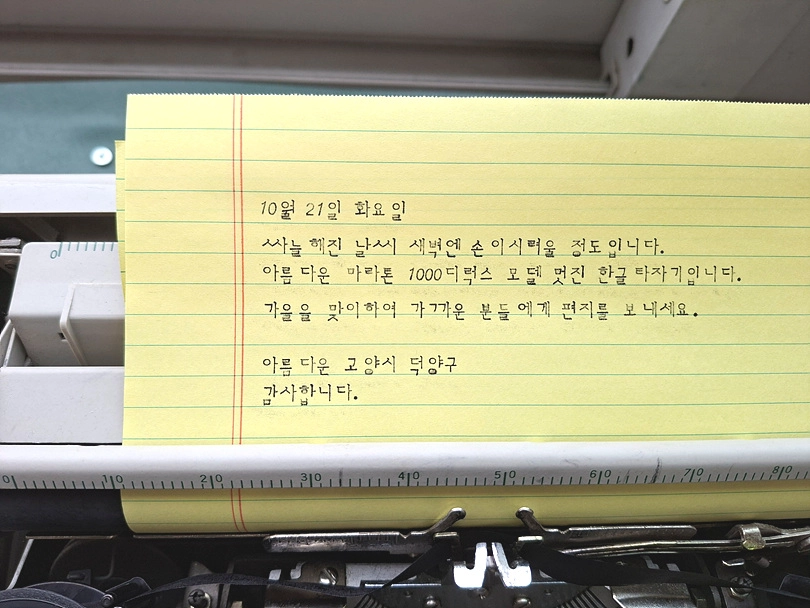 10월 21일 화요일
싸늘해진 날씨 새벽엔 손이시려울 정도입니다.
아름다운 마라톤 1000디럭스 모델 멋진 한글타자기입니다.
가을을 맞이하여 가까운 분들에게 편지를 보내세요.
아름다운 고양시 덕양구
감사합니다.
0 10 20 30 40 50 60 70 80
0